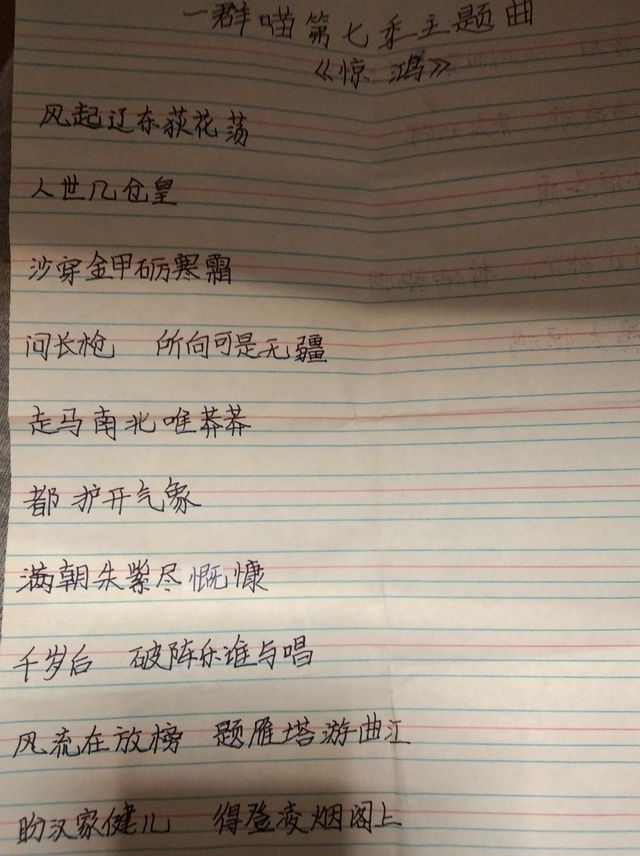 一群喵第七季主题曲
《惊鸿》
风起辽东荻花荡
人世几仓皇
沙穿金甲砺寒霜
问长枪 所向可是无疆
走马南北唯莽莽
都护开气象
满朝朱紫尽慨慷
千岁后 破阵乐谁与唱
风流在放榜 题雁塔游曲江
盼汉家健儿 得登凌烟阁上